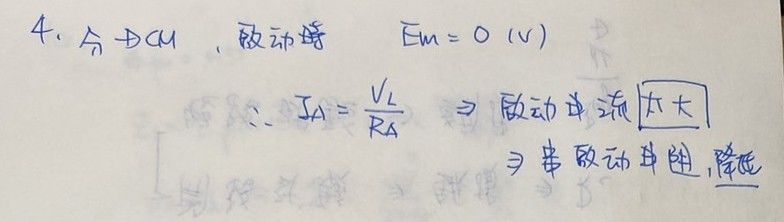 4. 今 DCM , 啟动時 Em = 0 (V)
∴ IA = VL/RA ⇒ 啟动电流太大
⇒ 串啟动电阻,降低